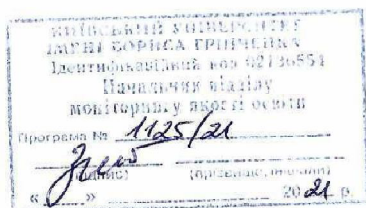 КИЇВСЬКИЙ УНІВЕРСИТЕТ
ІМЕНІ БОРИСА ГРІНЧЕНКА
Ідентифікаційний код 02136554
Начальник відділу
моніторингу якості освіти
Програма № 1125/21
(підпис) (прізвище, ініціали)
« » 2021 р.